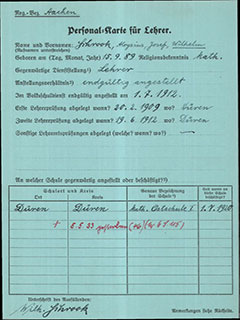 Reg.-Bez. Aachen
Personal-Karte für Lehrer.
Name und Vornamen: Schrook, Aloysius, Josef, Wilhelm
(Rufnamen unterstreichen)
Geboren am (Tag, Monat, Jahr) 15.9.89 Religionsbekenntnis kath.
Gegenwärtige Dienststellung? Lehrer
Anstellungsverhältnis? endgültig angestellt
Im Volksschuldienst endgültig angestellt am 1.7.1912.
Erste Lehrerprüfung abgelegt wann? 20.2.1909 wo? Düren
Zweite Lehrerprüfung abgelegt wann? 19.6.1912 wo? Düren
Sonstige Lehrerprüfungen abgelegt welche? wann? wo? —
An welcher Schule gegenwärtig angestellt oder beschäftigt?
Schulort und Kreis
Genaue Bezeichnung der Schule
Seit wann an dieser Schule?
Ort
Kreis
Düren Düren kath. Ostschule I. 1.7.1920
† 5.5.33 gestorben
Unterschrift des Ausfüllenden:
Wilh. Schrook
Bemerkungen siehe Rückseite.